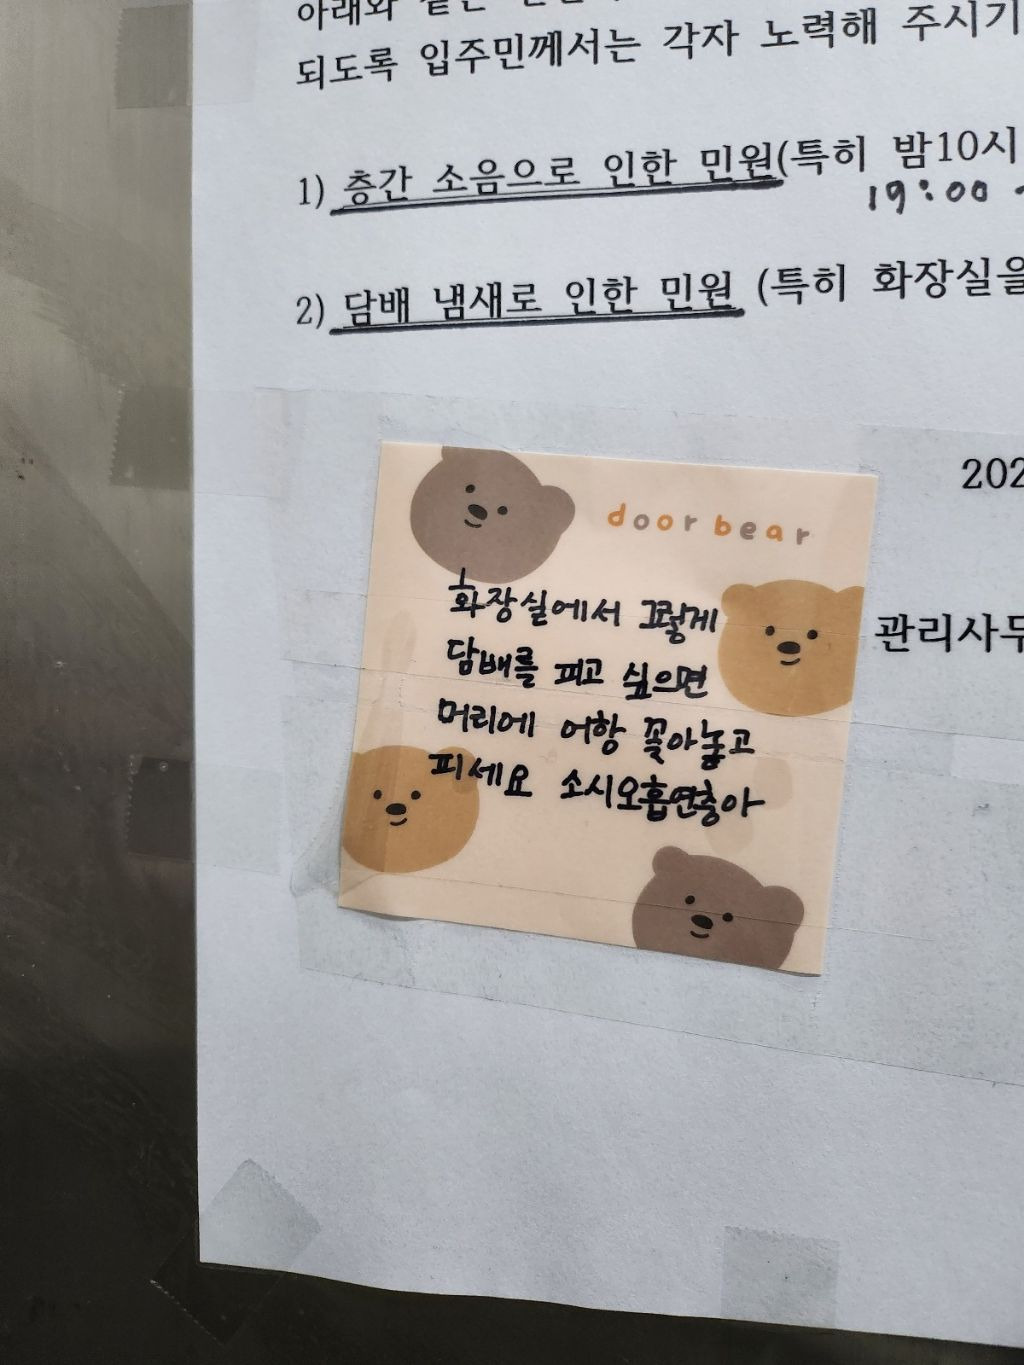 아래와 같은
되도록 입주민께서는 각자 노력해 주시기
1) 층간 소음으로 인한 민원(특히 밤10시
19:00 ~
2) 담배 냄새로 인한 민원 (특히 화장실을
202
door bear
화장실에서 그렇게
담배를 피고 싶으면
관리사무
머리에 어항 꽂아놓고
피세요 소시오흡연충아